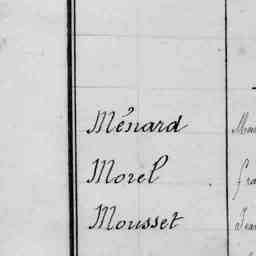 Ménard
Morel
Mousset